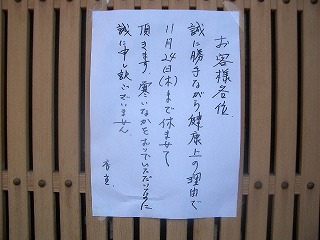 お客様各位
誠に勝手ながら健康上の理由で
11月24日(木)まで休ませて
頂きます。寒いなかをおいでいただいたのに
誠に申し訳ございません。